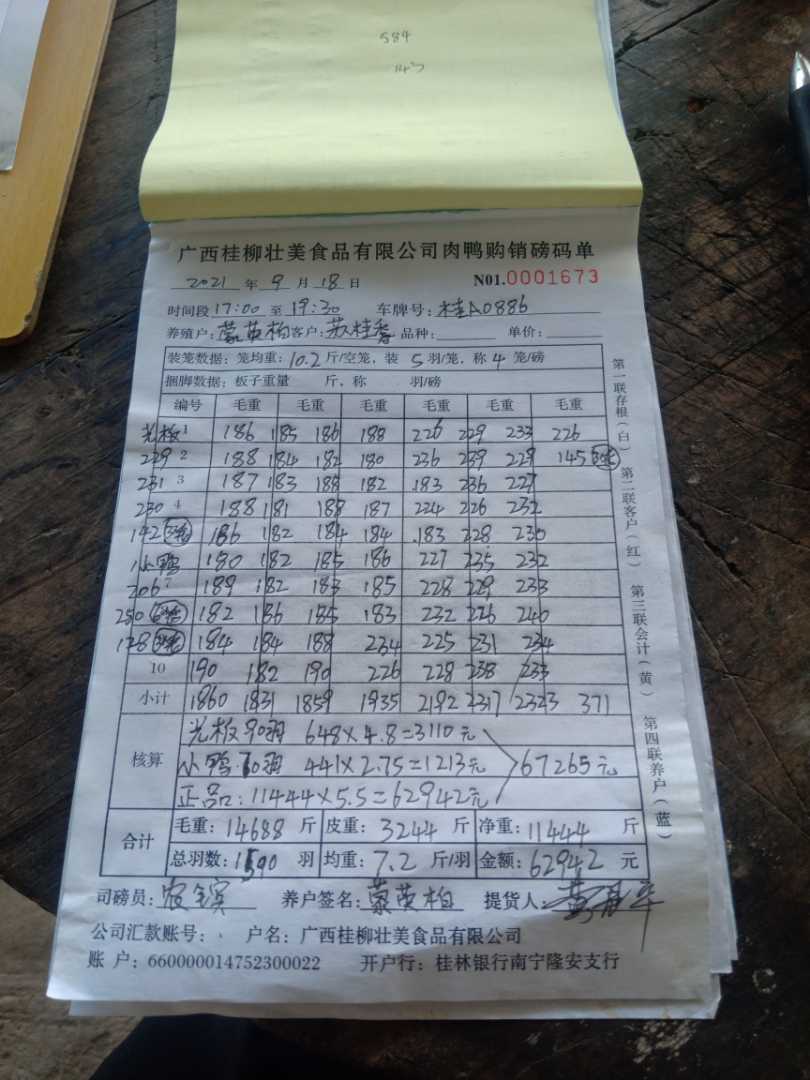 584
广西桂柳壮美食品有限公司肉鸭购销磅码单
2021 年 9 月 18 日 N01.0001673
时间段 17:00 至 19:30 车牌号: 桂A0886
养殖户: 蒙英柏 客户: 苏桂香 品种: 单价:
装笼数据: 笼均重: 10.2 斤/空笼, 装 5 羽/笼, 称 4 笼/磅
捆脚数据: 板子重量 斤, 称 羽/磅
编号 毛重 毛重 毛重 毛重 毛重 毛重
光板 1 186 185 186 188 226 229 233 226
229 2 188 184 182 180 236 239 229 145
231 3 187 183 188 182 183 236 227
230 4 188 181 188 187 224 226 232
192 186 182 184 184 183 228 230
小鸭 180 182 185 186 227 235 232
206 7 189 182 183 185 228 229 233
250 182 186 185 183 232 226 240
128 184 184 188 234 225 231 234
10 190 182 190 226 228 238 233
小计 1860 1831 1859 1935 2192 2317 2323 371
核算 光板 90羽 648×4.8=3110元
小鸭 60羽 441×2.75=1213元 67265元
正品: 11444×5.5=62942元
合计 毛重: 14688 斤 皮重: 3244 斤 净重: 11444 斤
总羽数: 1590 羽 均重: 7.2 斤/羽 金额: 62942 元
司磅员: 养户签名: 蒙英柏 提货人:
公司汇款账号: 户名: 广西桂柳壮美食品有限公司
账 户: 660000014752300022 开户行: 桂林银行南宁隆安支行
第一联存根(白) 第二联客户(红) 第三联会计(黄) 第四联养户(蓝)